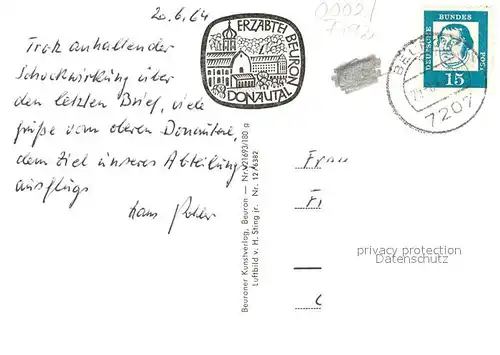 20.6.64
Trotz anhaltender
Schockwirkung über
den letzten Brief, viele
Grüße vom oberen Donautal,
dem Ziel unseres Abteilungs
ausflugs
Hans
ERZABTEI BEURON
DONAUTAL
7207
DEUTSCHE BUNDES POST
15
Beuroner Kunstverlag, Beuron — Nr. V21693/180 g
Luftbild v. H. Sting jr. Nr. 12/6382
Frau
privacy protection
Datenschutz